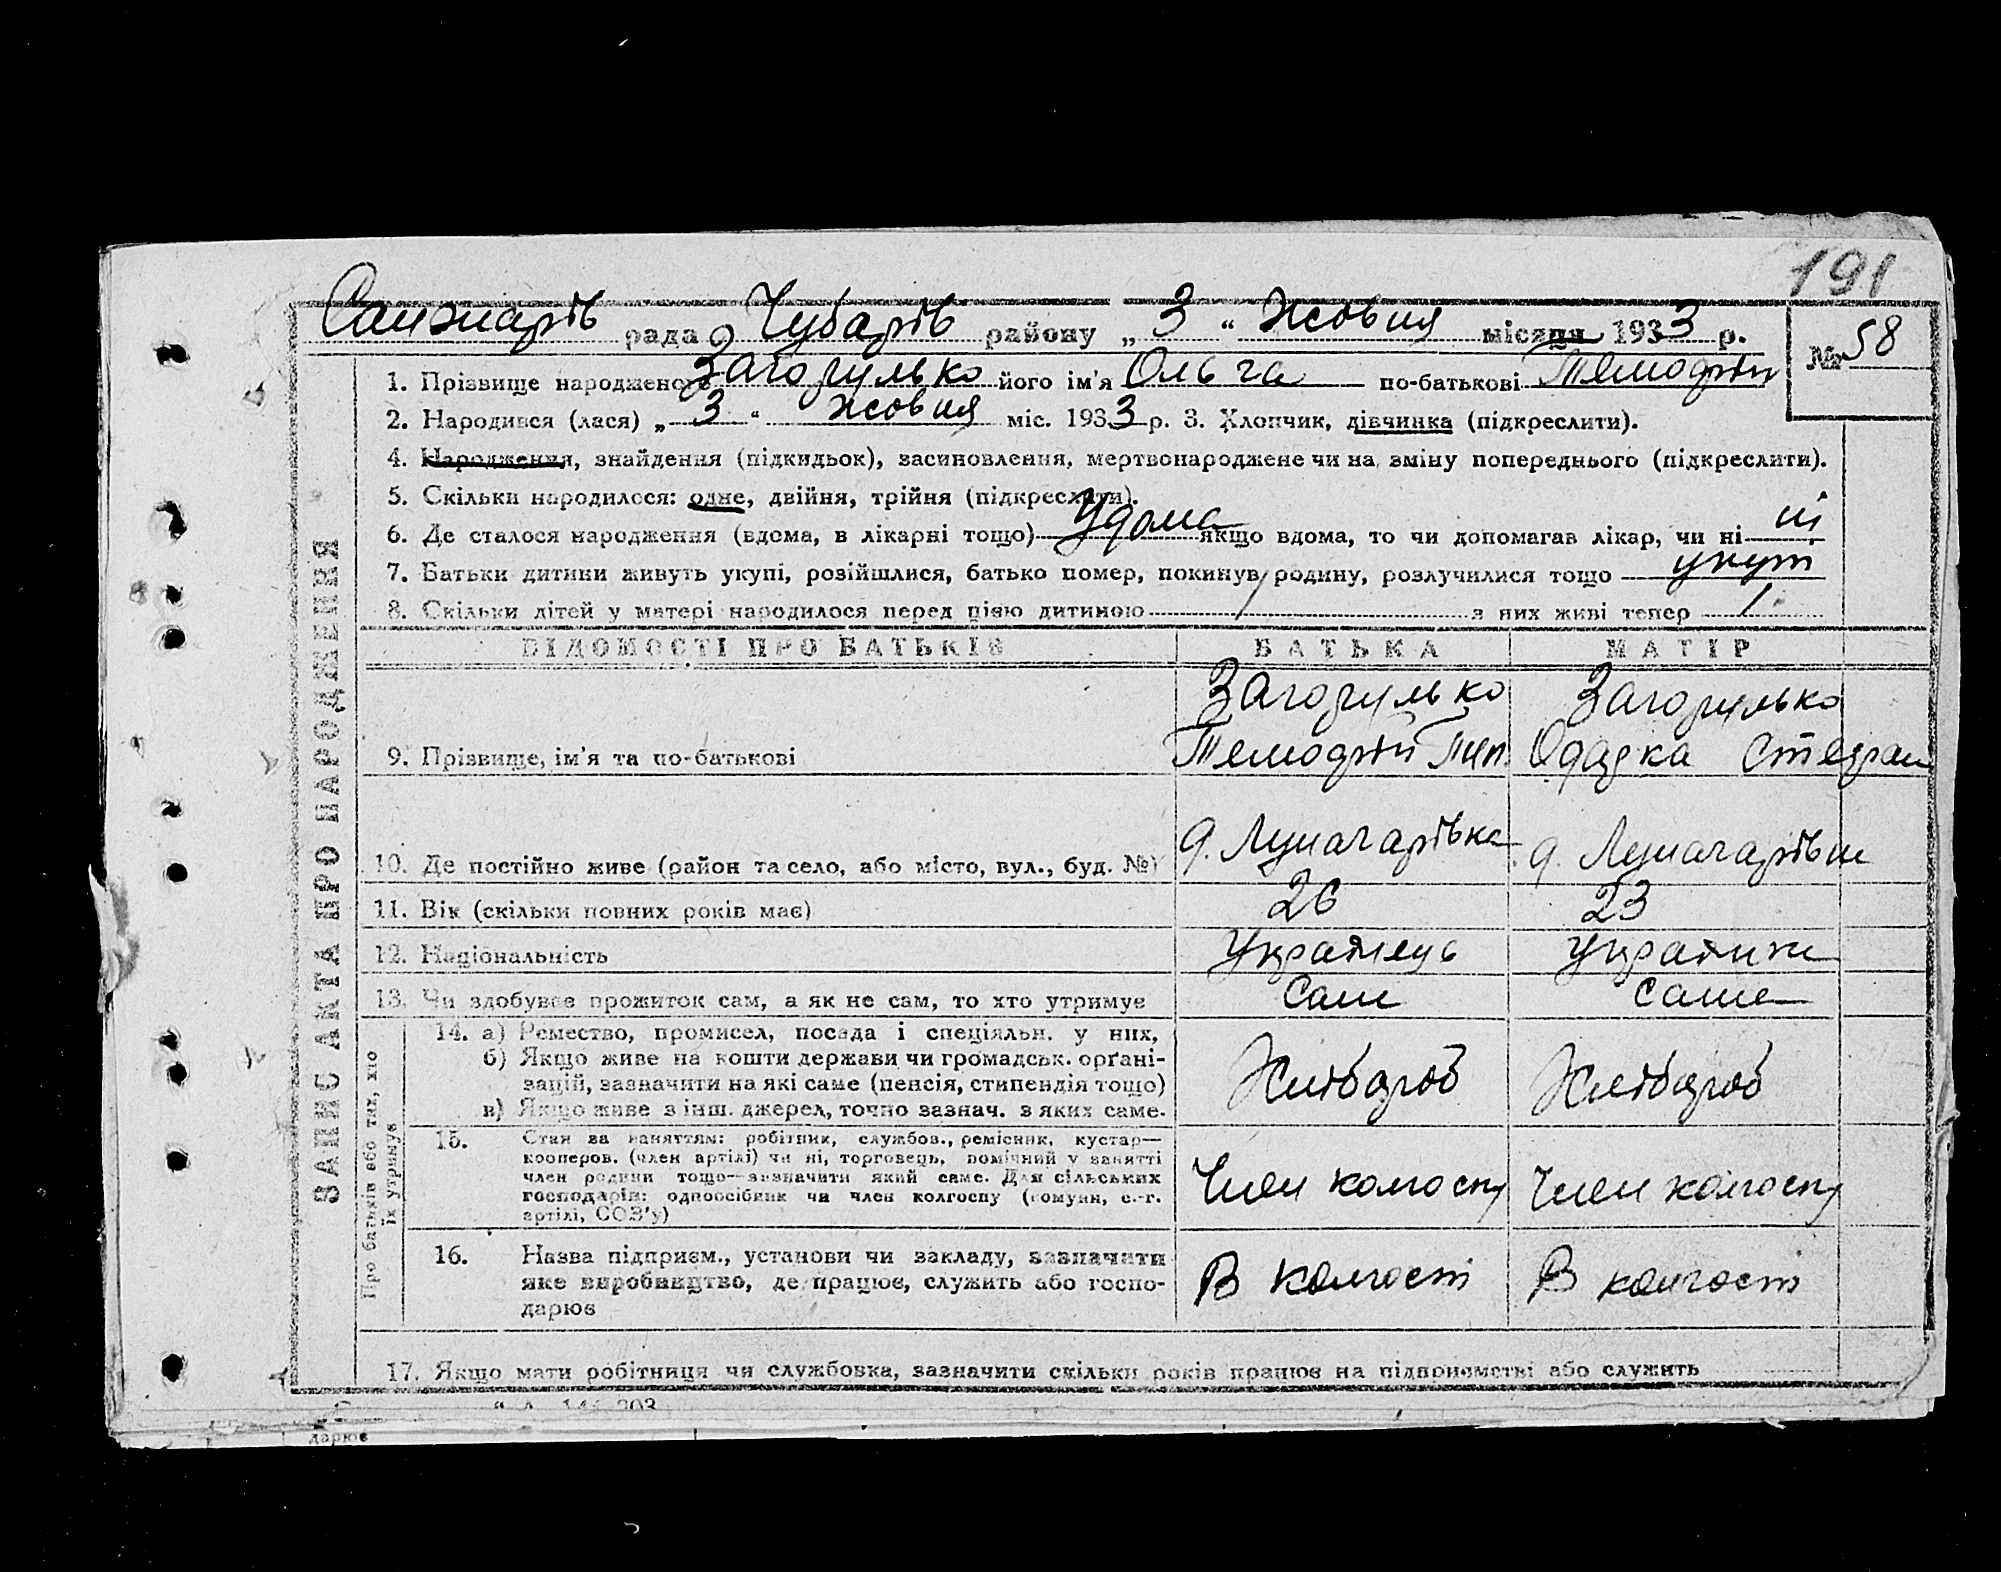 191
Санжарів рада Чубарів району „ 3 “ Жовня місяця 1933 р.
№ 58
1. Прізвище народженого Загорулько його ім'я Ольга по-батькові
2. Народився (лася) „ 3 “ жовня міс. 1933 р. 3. Хлопчик, дівчинка (підкреслити).
4. Народження, знайдення (підкидьок), засиновлення, мертвонароджене чи на зміну попереднього (підкреслити).
5. Скільки народилося: одне, двійня, трійня (підкреслити).
6. Де сталося народження (вдома, в лікарні тощо) Удома якщо вдома, то чи допомагав лікар, чи ні ні
7. Батьки дитини живуть укупі, розійшлися, батько помер, покинув родину, розлучилися тощо укупі
8. Скільки дітей у матері народилося перед цією дитиною 1 з них живі тепер 1
ВІДОМОСТІ ПРО БАТЬКІВ БАТЬКА МАТІР
Загорулько Загорулько
9. Прізвище, ім'я та по-батькові
10. Де постійно живе (район та село, або місто, вул., буд. №) с. Луначарівка с. Луначарівка
11. Вік (скільки повних років має) 26 23
12. Національність Українець Українка
13. Чи здобуває прожиток сам, а як не сам, то хто утримує Сам Сама
14. а) Ремество, промисел, посада і спеціяльн. у них,
б) Якщо живе на кошти держави чи громадськ. орґані-
зацій, зазначити на які саме (пенсія, стипендія тощо)
в) Якщо живе з інш. джерел, точно зазнач. з яких саме.
Хлібороб Хлібороб
15. Стан за заняттям: робітник, службов., ремісник, кустар—
кооперов. (член артілі) чи ні, торговець, помічний у занятті
член родини тощо—зазначити який саме. Для сільських
господарів: одноосібник чи член колгоспу (комуни, с.-г.
артілі, СОЗ'у)
Член колгоспу Член колгоспу
16. Назва підприєм., установи чи закладу, зазначити
яке виробництво, де працює, служить або госпо-
дарює
В колгоспі В колгоспі
17. Якщо мати робітниця чи службовка, зазначити скільки років працює на підприємстві або служить
ЗАПИС АКТА ПРО НАРОДЖЕННЯ
Про батьків або тих, хто
їх утримує
дарює